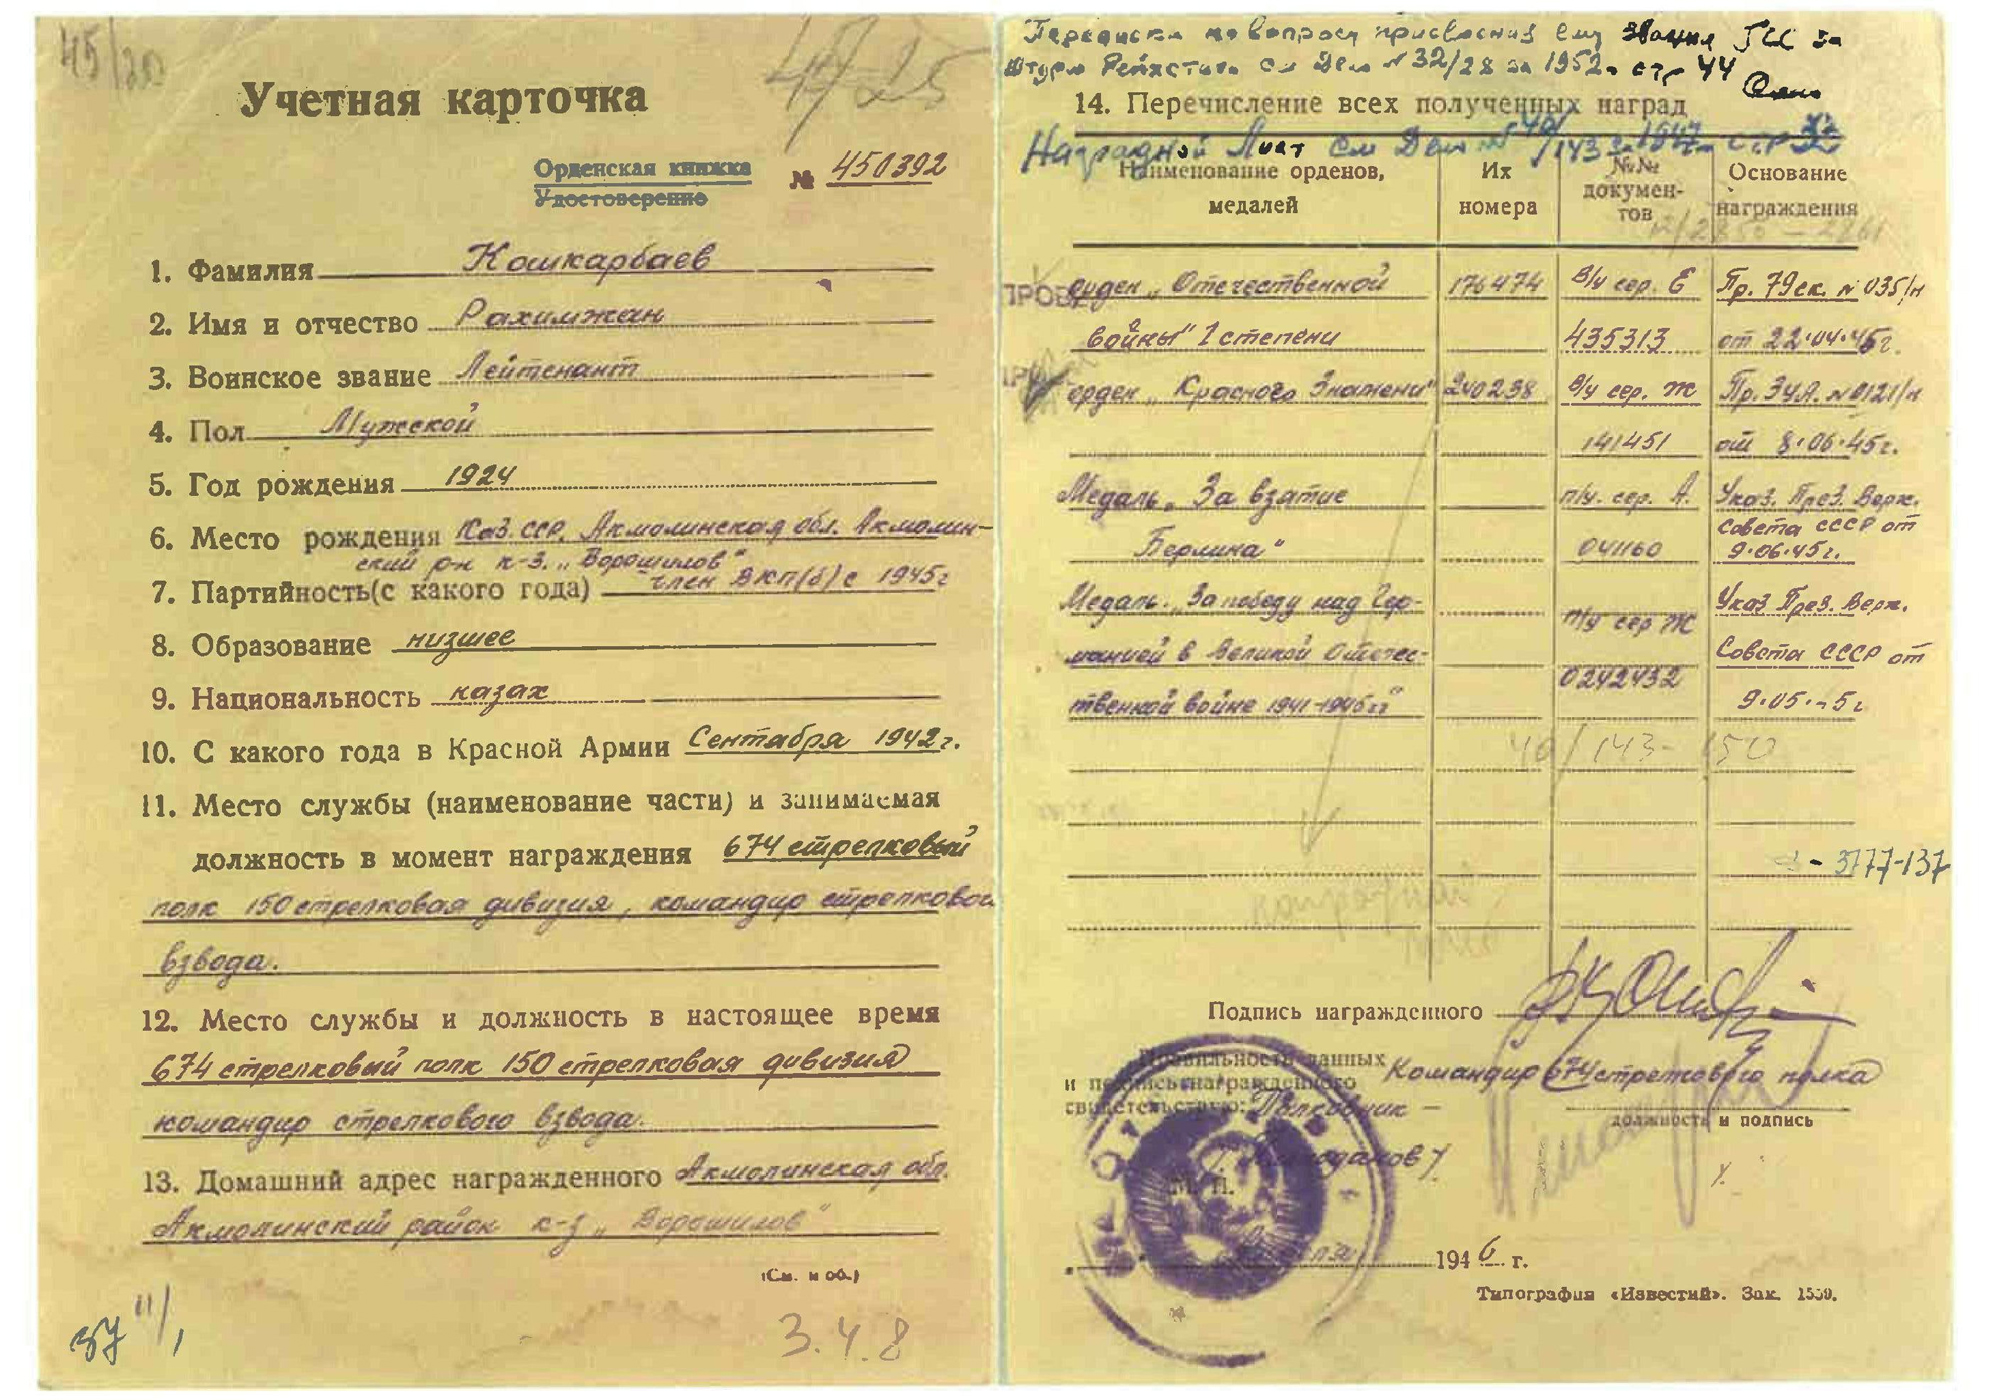 45/20
47-25
Учетная карточка
Орденская книжка
Удостоверение
№ 450392
1. Фамилия Кошкарбаев
2. Имя и отчество Рахимжан
3. Воинское звание Лейтенант
4. Пол Мужской
5. Год рождения 1924
6. Место рождения Каз. ССР, Акмолинская обл. Акмолин-
ский р-н к-з. „Ворошилов"
7. Партийность (с какого года) член ВКП(б) с 1945г
8. Образование низшее
9. Национальность казах
10. С какого года в Красной Армии Сентября 1942г.
11. Место службы (наименование части) и занимаемая
должность в момент награждения 674 стрелковый
полк 150 стрелковая дивизия, командир стрелкового
взвода.
12. Место службы и должность в настоящее время
674 стрелковый полк 150 стрелковая дивизия
командир стрелкового взвода.
13. Домашний адрес награжденного Акмолинская обл.
Акмолинский район к-з „Ворошилов"
(См. н об.)
3.4.8
Переписка по вопросу присвоения ему звания ГСС за
штурм Рейхстага см Дело № 32/28 за 1952г стр 44
14. Перечисление всех полученных наград
Наградной Лист см Дело № 40/143 1947 стр
Наименование орденов, медалей
Их номера
№№ документов
Основание награждения
орден „Отечественной 176474 В/у сер. Е Пр. 79ск. № 035/н
войны" 1 степени 435313 от 22.04.45г.
орден „Красного Знамени" 240238 В/у сер. Ж Пр. 3У.А. № 0121/н
141451 от 8.06.45г.
Медаль „За взятие п/у. сер. А. Указ. През. Верх.
Совета СССР от
Берлина" 041160 9.06.45г.
Медаль „За победу над Гер- п/у сер Ж Указ През. Верх.
манией в Великой Отечес- Совета СССР от
ственной войне 1941-1945гг" 0242432 9.05.-5г
40/143-150
3777-137
наградной
лист
Подпись награжденного
Правильность данных
и подпись награжденного
свидетельствую:
Командир 674 стрелкового полка
Полковник –
должность и подпись
М. П.
1946 г.
Типография «Известий». Зак. 1559.